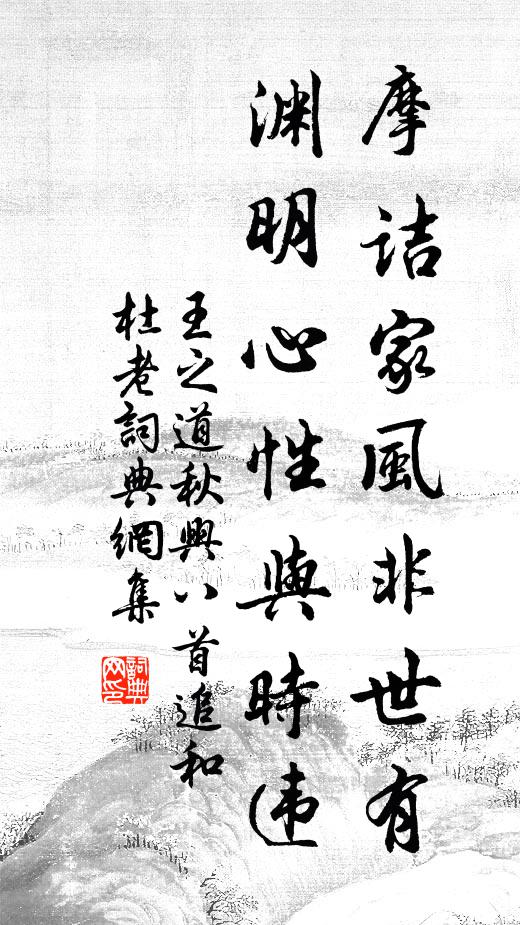 摩诘家風非世有
渊明心性與時違
王之道秋興八首追和
杜老詞典網集
詞典
网印